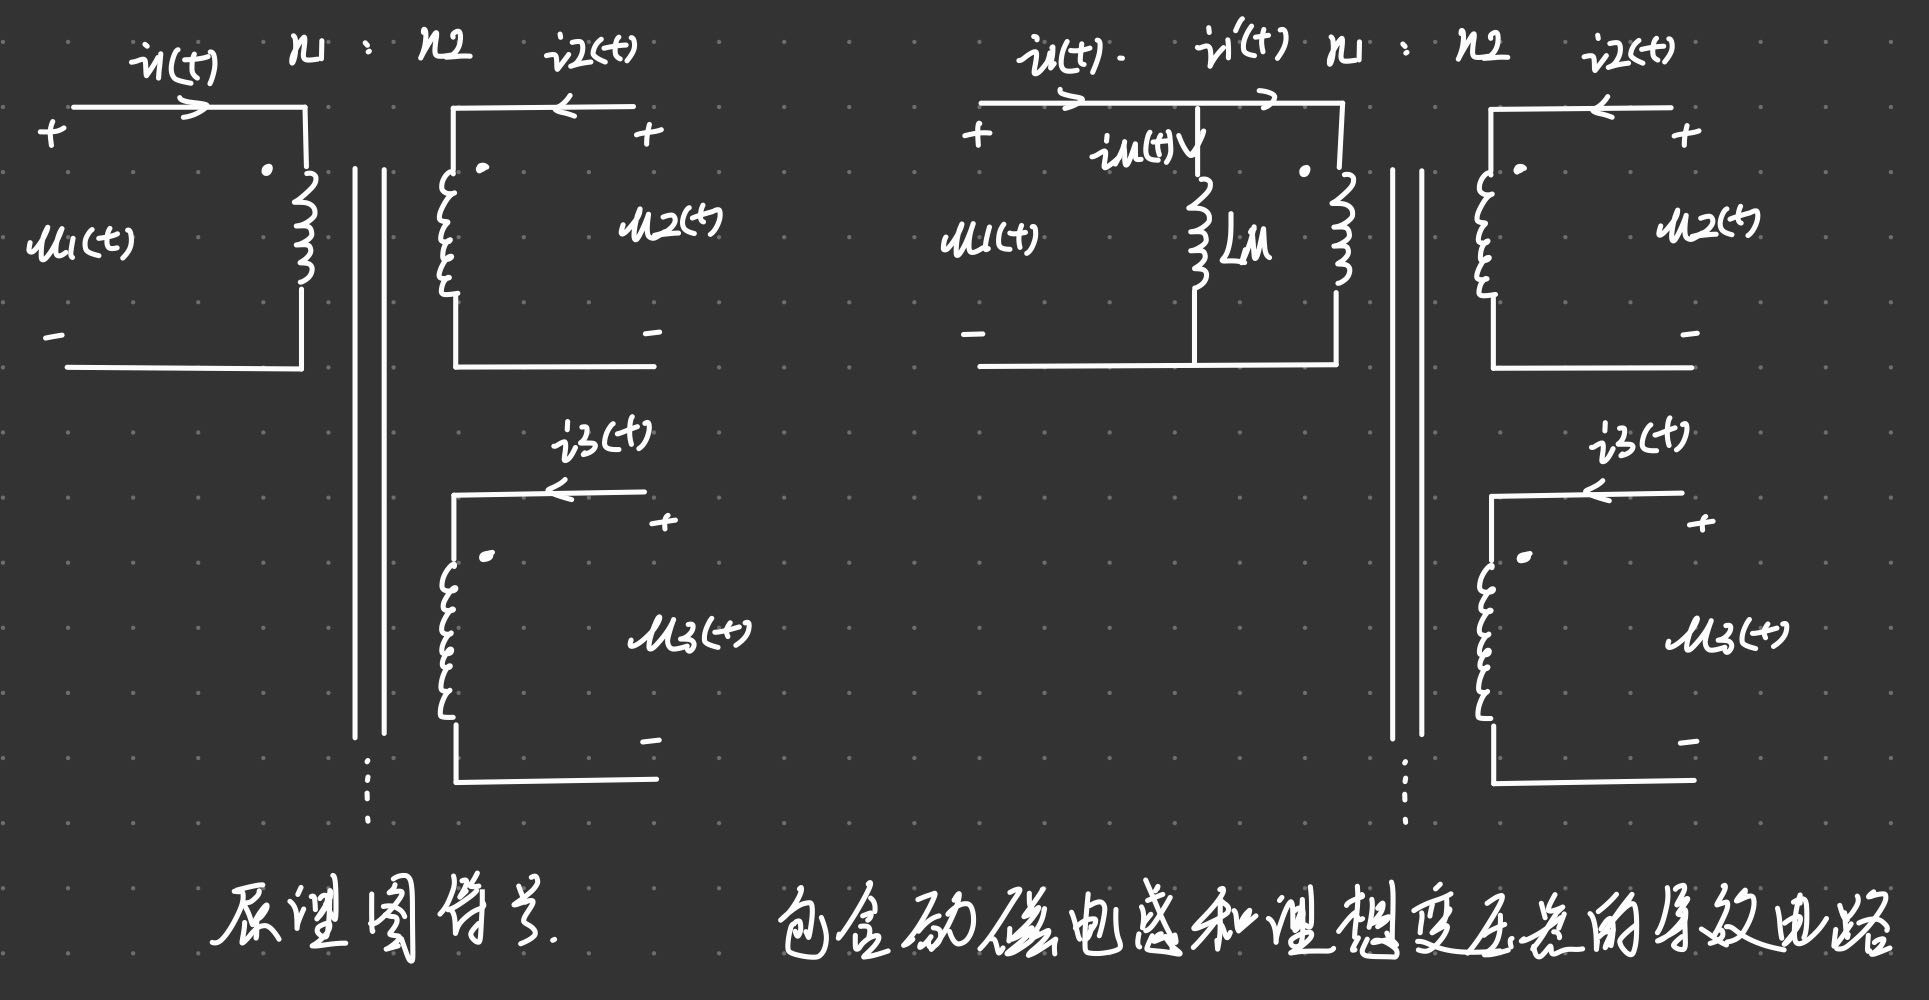 i1(t) n1 : n2 i2(t)
+ +
u1(t) u2(t)
- -
i3(t)
+
u3(t)
-
原理图符号.
i1(t). i1'(t) n1 : n2 i2(t)
+ iM(t) +
u1(t) LM u2(t)
- -
i3(t)
+
u3(t)
-
包含励磁电感和理想变压器的等效电路